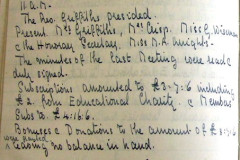 11. a.m.
The Hon. Griffiths presided.
Present. Mrs Griffiths, Mrs Crisp. Miss G. Wiseman
& the Honorary Secretary. Miss M. A. Knights.
The minutes of the Last Meeting were read &
duly signed.
Subscriptions amounted to £3-7-6 including
£2 from Educational Charity & Members'
Subs £4.16.6.
Bonuses & Donations to the amount of
were
leaving no balance in hand.